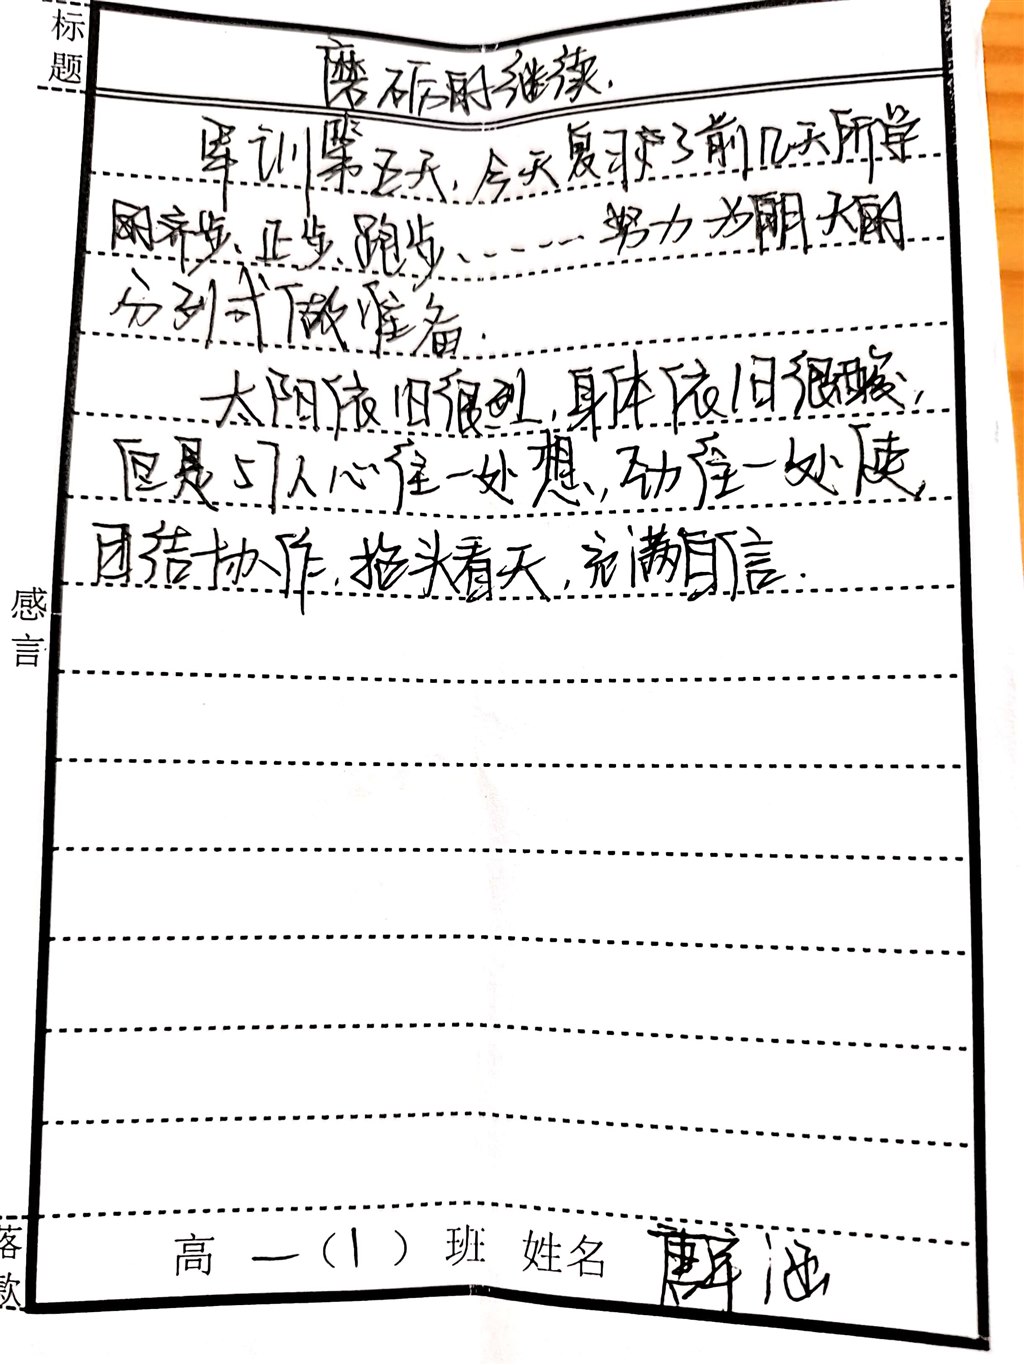 标题
磨砺的继续.
军训第五天,今天复习了前几天所学
的齐步、止步、跑步、……努力为明天的
分列式做准备.
太阳依旧很烈,身体依旧很酸,
但是57人心往一处想,劲往一处使,
团结协作,抬头看天,充满自信.
感言
落款
高一(1)班 姓名